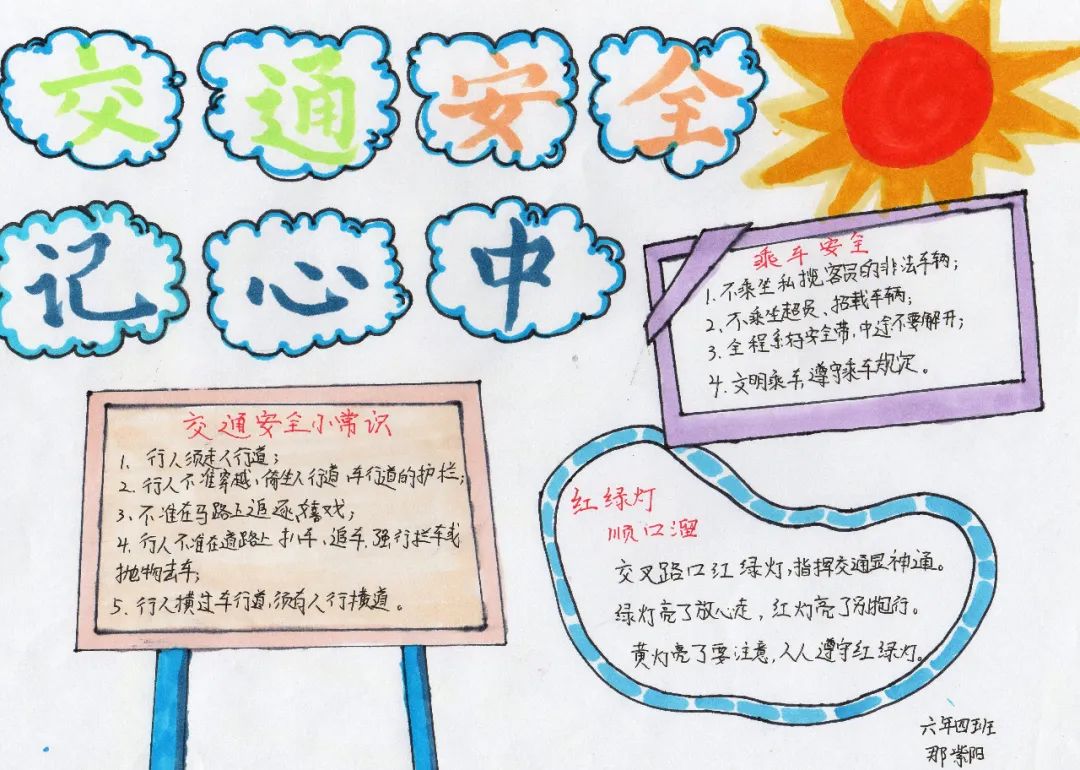 交通安全
记心中
乘车安全
1.不乘坐私揽客员的非法车辆;
2.不乘坐超员、超载车辆;
3.全程系好安全带,中途不要解开;
4.文明乘车,遵守乘车规定。
交通安全小常识
1. 行人须走人行道;
2.行人不准穿越、倚坐人行道、车行道的护栏;
3.不准在马路上追逐、嬉戏;
4.行人不准在道路上扒车、追车、强行拦车或
抛物击车;
5.行人横过车行道,须有人行横道。
红绿灯
顺口溜
交叉路口红绿灯,指挥交通显神通。
绿灯亮了放心走,红灯亮了别抱行。
黄灯亮了要注意,人人遵守红绿灯。
六年四班
那紫阳